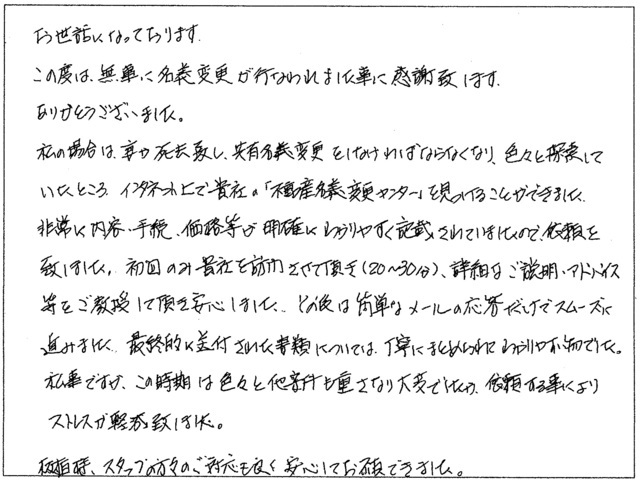 お世話になっております。
この度は、無事に名義変更が行なわれました事に感謝致します。
ありがとうございました。
私の場合は、妻が死去致し、共有名義変更をしなければならなくなり、色々と探索して
いたところ、インタネット上で貴社の「不動産名義変更センター」を見つけることができました。
非常に内容・手続、価格等が明確にわかりやすく記載されていましたので、依頼を
致しました。初回のみ貴社を訪問させて頂き(20〜30分)、詳細なご説明・アドバイス
等をご教授して頂き安心しました。その後は簡単なメールの応答だけでスムーズに
進みました。最終的に送付された書類については、丁寧にまとめられてわかりやすい物でした。
私事ですが、この時期は色々と他案件も重さなり大変でしたが、依頼する事により
ストレスが軽減致しました。
板垣様、スタッフの方々のご対応も良く安心してお願いできました。